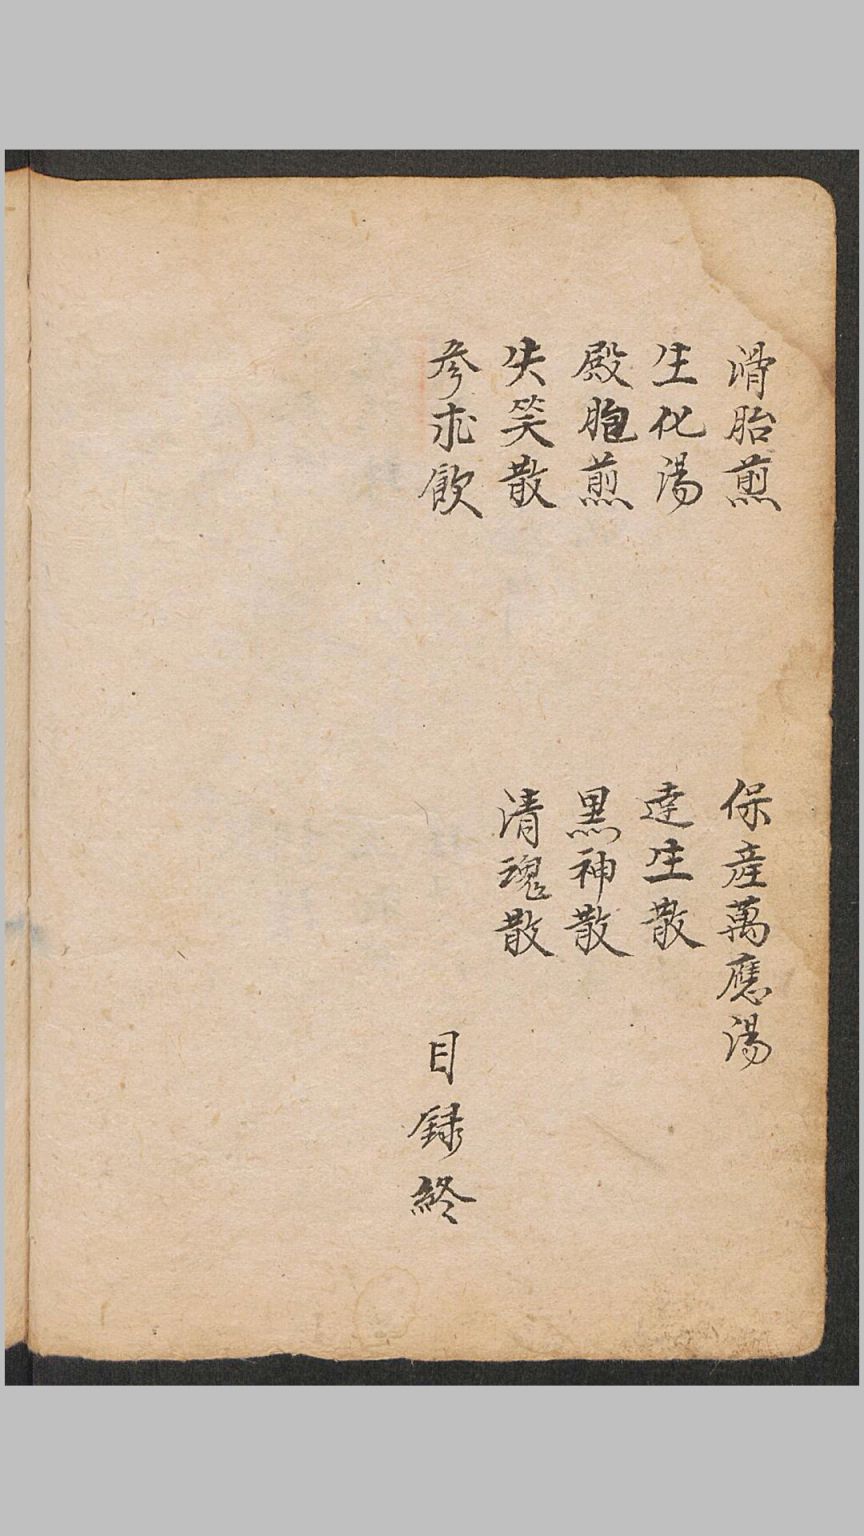 滑胎煎
保產萬應湯
生化湯
達生散
殿胞煎
黑神散
失笑散
清魂散
參朮飲
目録終